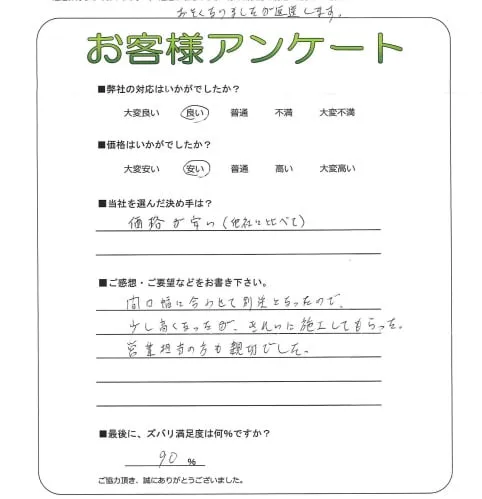 おそくなりましたが返送します。
お客様アンケート
■弊社の対応はいかがでしたか?
大変良い 良い 普通 不満 大変不満
■価格はいかがでしたか?
大変安い 安い 普通 高い 大変高い
■当社を選んだ決め手は?
価格が安い(他社に比べて)
■ご感想・ご要望などをお書き下さい。
間口幅に合わせて別注となったので、
少し高くなったが、きれいに施工してもらった。
営業担当の方も親切でした。
■最後に、ズバリ満足度は何%ですか?
90 %
ご協力頂き、誠にありがとうございました。